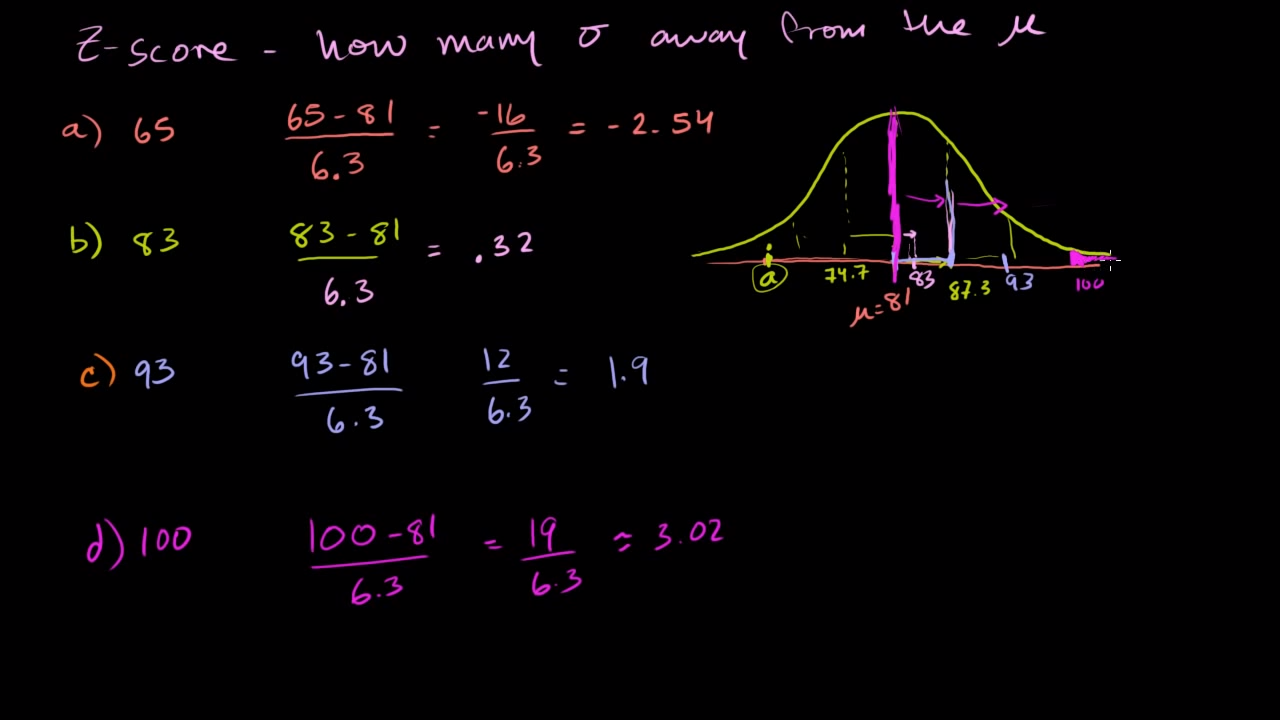 Z-score - how many σ away from the μ
a) 65 65-81/6.3 = -16/6.3 = -2.54
b) 83 83-81/6.3 = .32
c) 93 93-81/6.3 12/6.3 = 1.9
d) 100 100-81/6.3 = 19/6.3 ≈ 3.02
a 74.7 μ=81 83 87.3 93 100